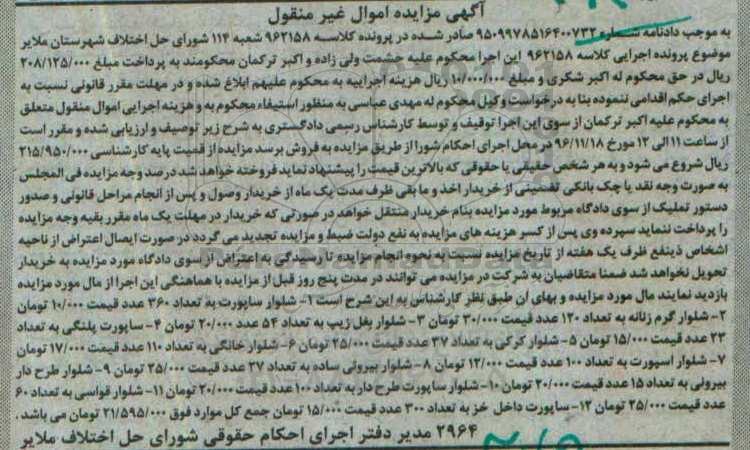 آگهی مزایده اموال غیر منقول
به موجب دادنامه شماره ۹۵۰۹۹۷۸۵۱۶۴۰۰۷۳۲ صادر شده در پرونده کلاسه ۹۶۲۱۵۸ شعبه ۱۱۴ شورای حل اختلاف شهرستان ملایر
موضوع پرونده اجرایی کلاسه ۹۶۲۱۵۸ این اجرا محکوم علیه حشمت ولی زاده و اکبر ترکمان محکومند به پرداخت مبلغ ۲۰۸/۱۲۵/۰۰۰
ریال در حق محکوم له اکبر شکری و مبلغ ۱۰/۰۰۰/۰۰۰ ریال هزینه اجراییه به محکوم علیهم ابلاغ شده و در مهلت مقرر قانونی نسبت به
اجرای حکم اقدامی ننموده بنا به درخواست وکیل محکوم له مهدی عباسی به منظور استیفاء محکوم به و هزینه اجرایی اموال منقول متعلق
به محکوم علیه اکبر ترکمان از سوی این اجرا توقیف و توسط کارشناس رسمی دادگستری به شرح زیر توصیف و ارزیابی شده و مقرر است
از ساعت ۱۱ الی ۱۲ مورخ ۹۶/۱۱/۱۸ در محل اجرای احکام شورا از طریق مزایده به فروش برسد مزایده از قیمت پایه کارشناسی ۲۱۵/۹۵۰/۰۰۰
ریال شروع می شود و به هر شخص حقیقی یا حقوقی که بالاترین قیمت را پیشنهاد نماید فروخته خواهد شد درصد وجه مزایده فی المجلس
به صورت وجه نقد یا چک بانکی تضمینی از خریدار اخذ و ما بقی ظرف مدت یک ماه از خریدار وصول و پس از انجام مراحل قانونی و صدور
دستور تملیک از سوی دادگاه مربوط مورد مزایده بنام خریدار منتقل خواهد در صورتی که خریدار در مهلت یک ماه مقرر بقیه وجه مزایده
را پرداخت ننماید سپرده وی پس از کسر هزینه های مزایده به نفع دولت ضبط و مزایده تجدید می گردد در صورت ایصال اعتراض از ناحیه
اشخاص ذینفع ظرف یک هفته از تاریخ مزایده نسبت به نحوه انجام مزایده تا رسیدگی به اعتراض از سوی دادگاه مورد مزایده به خریدار
تحویل نخواهد شد ضمنا متقاضیان به شرکت در مزایده می توانند در مدت پنج روز قبل از مزایده با هماهنگی این اجرا از مال مورد مزایده
بازدید نمایند مال مورد مزایده و بهای ان طبق نظر کارشناس به این شرح است ۱- شلوار ساپورت به تعداد ۳۶۰ عدد قیمت ۱۰/۰۰۰ تومان
۲- شلوار گرم زنانه به تعداد ۱۲۰ عدد قیمت ۳۰/۰۰۰ تومان ۳- شلوار بغل زیپ به تعداد ۵۴ عدد ۲۰/۰۰۰ تومان ۴- ساپورت پلنگی به تعداد
۲۳ عدد قیمت ۱۵/۰۰۰ تومان ۵- شلوار کرکی به تعداد ۳۷ عدد قیمت ۲۵/۰۰۰ تومان ۶- شلوار خانگی به تعداد ۱۱۰ عدد قیمت ۱۷/۰۰۰ تومان
۷- شلوار اسپورت به تعداد ۱۰۰ عدد قیمت ۱۲/۰۰۰ تومان ۸- شلوار بیرونی ساده به تعداد ۲۷ عدد قیمت ۲۵/۰۰۰ تومان ۹- شلوار طرح دار
بیرونی به تعداد ۱۵ عدد قیمت ۲۰/۰۰۰ تومان ۱۰- شلوار ساپورت طرح دار به تعداد ۱۰۰ عدد قیمت ۲۰/۰۰۰ تومان ۱۱- شلوار قواسی به تعداد ۶۰
عدد قیمت ۲۵/۰۰۰ تومان ۱۲- ساپورت داخل خز به تعداد ۳۰۰ عدد قیمت ۱۵/۰۰۰ تومان جمع کل موارد فوق ۲۱/۵۹۵/۰۰۰ تومان می باشد.
۲۹۶۴ مدیر دفتر اجرای احکام حقوقی شورای حل اختلاف ملایر